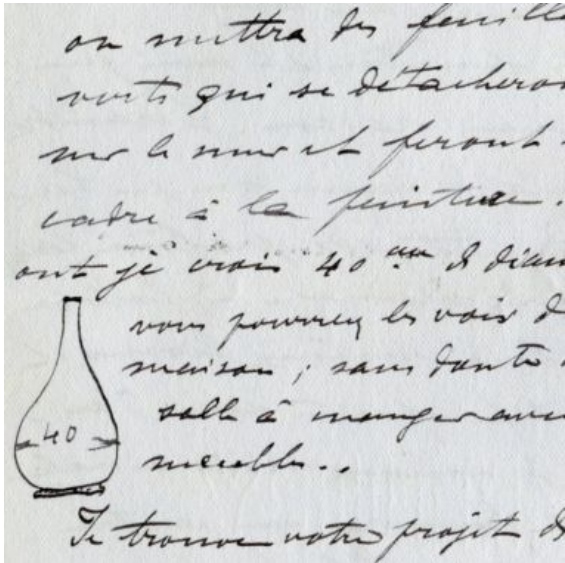 on mettra des feuill
verts qui se détacheron
sur le mur et feront
cadre à la peinture.
ont je crois 40 cm de diam
vous pourrez les voir d
maison ; sans doute
salle à manger avec
40
meubles..
Je trouve votre projet d